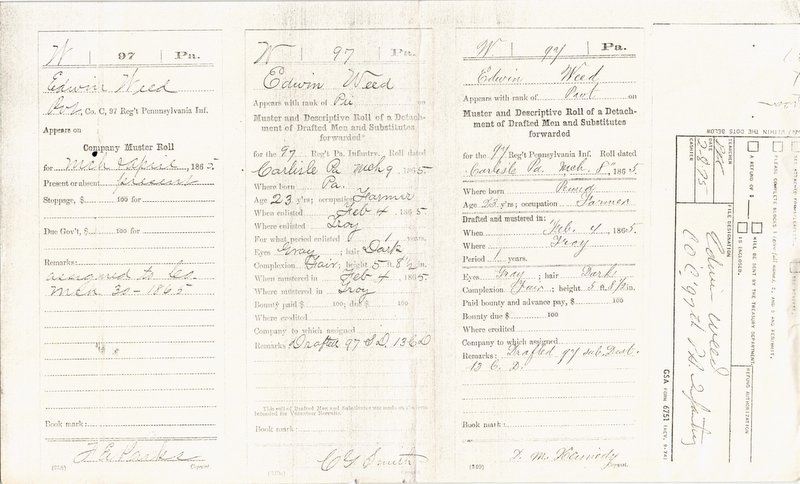 W | 97 | Pa.
Edwin Weed
Pvt, Co. C, 97 Reg't Pennsylvania Inf.
Appears on
Company Muster Roll
for Mch & April, 1865.
Present or absent Present
Stoppage, $ 100 for
Due Gov't, $ 100 for
Remarks:
assigned to Co.
Mch 30 - 1865
Book mark:
(358) Copyist.
W | 97 | Pa.
Edwin Weed
Appears with rank of Pvt on
Muster and Descriptive Roll of a Detach-
ment of Drafted Men and Substitutes
forwarded*
for the 97 Reg't Pa. Infantry. Roll dated
Carlisle Pa Mch 9, 1865
Where born Pa.
Age 23 y'rs; occupation Farmer
When enlisted Feb 4, 1865
Where enlisted Troy
For what period enlisted 1 years.
Eyes Gray; hair Dark
Complexion Fair; height 5 ft. 8 1/2 in.
When mustered in Feb 4, 1865
Where mustered in Troy
Bounty paid $ 100; due $ 100
Where credited
Company to which assigned
Remarks: Drafted 97 S D. 13 C D
*This roll of Drafted Men and Substitutes was made on
intended for Volunteer Recruits.
Book mark:
C G Smith
Copyist.
W | 97 | Pa.
Edwin Weed
Appears with rank of Pvt on
Muster and Descriptive Roll of a Detach-
ment of Drafted Men and Substitutes
forwarded
for the 97 Reg't Pennsylvania Inf. Roll dated
Carlisle Pa. Mch. 8", 1865.
Where born
Age 23 y'rs; occupation Farmer
Drafted and mustered in:
When Feb. 4, 1865.
Where Troy
Period 1 years.
Eyes Gray; hair Dark
Complexion Fair; height 5 ft. 8 1/2 in.
Paid bounty and advance pay, $ 100
Bounty due $ 100
Where credited
Company to which assigned
Remarks: Drafted 97 sub. Dist.
13 C. D.
Book mark:
D. M. Kennedy
(339) Copyist.
WITHIN THE DOTS BELOW
PLEASE COMPLETE BLOCKS 1 AND 2 AND RESUBMIT.
A REFUND OF $
WILL BE SENT BY THE TREASURY DEPARTMENT
IS ENCLOSED.
SEARCHER
DATE
2-8-75
FILE DESIGNATION
REFUND AUTHORIZATION
CASHIER
Edwin Weed
Co C, 97th PA. Infantry
GSA FORM 6751 (REV. 9-74)